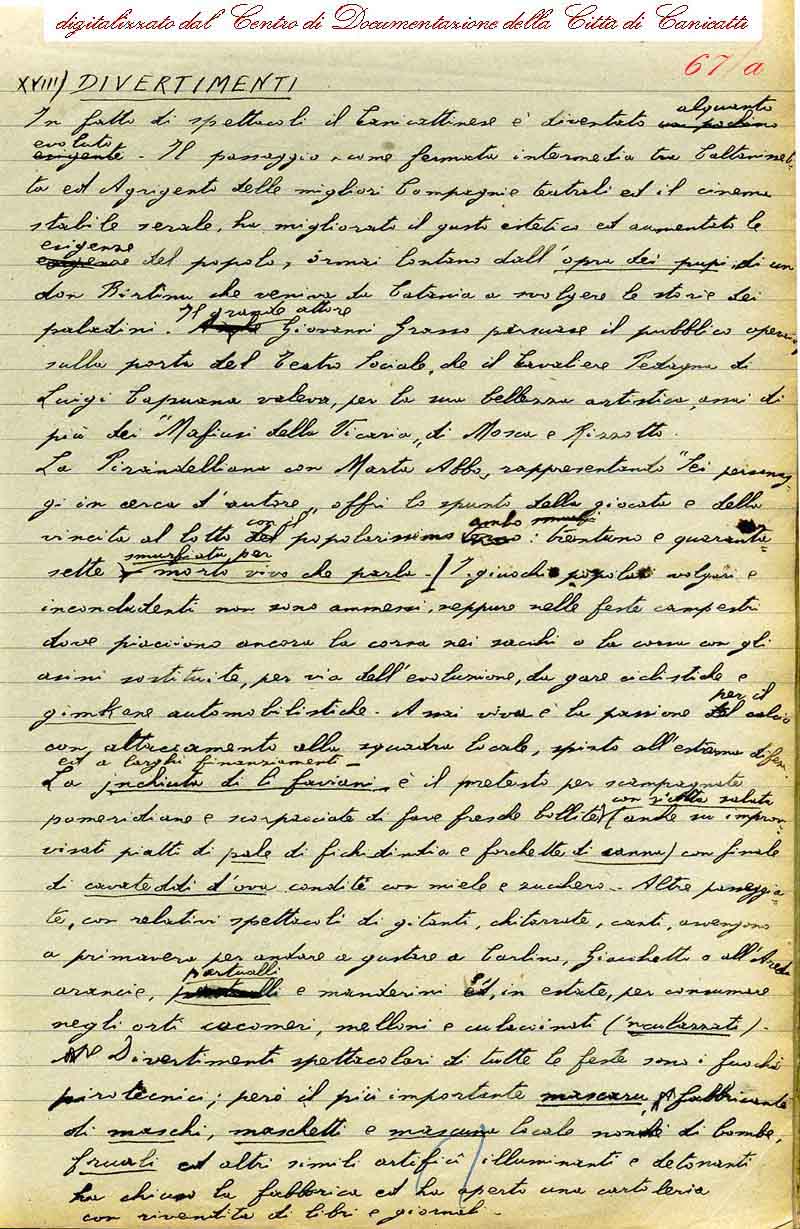 digitalizzato dal Centro di Documentazione della Città di Canicattì
67/a
XVIII) DIVERTIMENTI
In fatto di spettacoli il Canicattinese è diventato alquanto
evoluto - Il passaggio, come fermata intermedia tra Caltanisset-
ta ed Agrigento delle migliori Compagnie teatrali ed il cinema
stabile serale, ha migliorato il gusto estetico ed aumentato le
esigenze del popolo, ormai lontano dall'opra dei pupi di un
don Birtinu che veniva da Catania a svolgere le storie dei
paladini. Il grande attore Giovanni Grasso persuase il pubblico
sulla porta del Teatro Sociale, che il Cavaliere Pedagna di
Luigi Capuana valeva, per la sua bellezza artistica, assai di
più dei "Mafiusi della Vicaria" di Mosca e Rizzotto.
La Pirandelliana con Marta Abba, rappresentando "Sei personag-
gi in cerca d'autore" offrì lo spunto della giocata e della
vincita al lotto con il popolarissimo ambo: trentuno e quaranta-
sette smurfiatu per morto vivo che parla - I giuochi popolari volgari e
inconcludenti non sono ammessi, neppure nelle feste campestri
dove piacciono ancora la corsa nei sacchi o la corsa con gli
asini sostituite, per via dell'evoluzione, da gare ciclistiche e
gimkane automobilistiche. Assai viva è la passione per il calcio
con attaccamento alla squadra locale, spinto all'estrema difesa
ed a larghi finanziamenti -
La jnchiuta di li faviani è il pretesto per scampagnate
pomeridiane e scorpacciate di fave fresche bollite con ricotta salata (anche su improv-
visati piatti di pale di fichidindia e forchette di canna) con finale
di cavateddi d'ova condite con miele e zucchero - Altre passeggia-
te, con relativi spettacoli di gitanti, chitarrate, canti, avvengono
a primavera per andare a gustare a Carlino, Giacchetto o all'
arancie, partualli e manderini ed, in estate, per consumare
negli orti cocomeri, melloni e culacinati (inculazzati).
Divertimenti spettacolari di tutte le feste sono i fuochi
pirotecnici; però il più importante mascaru, fabbricante
di maschi, maschetti e mascuna locale nonché di bombe,
fruali ed altri simili artifici illuminanti e detonanti
ha chiuso la fabbrica ed ha aperto una cartoleria
con rivendita di libri e giornali -